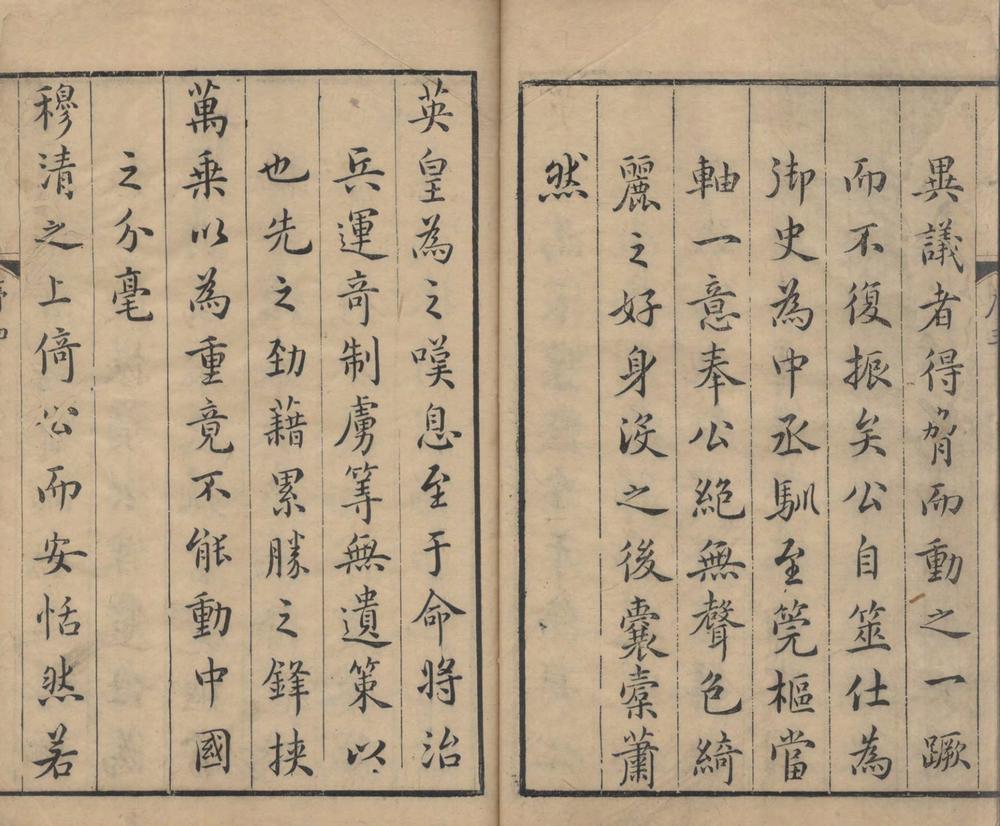 異議者得脅而動之一蹶
而不復振矣公自筮仕為
御史為中丞馴至筦樞當
軸一意奉公絕無聲色綺
麗之好身沒之後囊橐蕭
然
英皇為之嘆息至于命將治
兵運奇制虜筭無遺策以
也先之勁藉累勝之鋒挾
萬乗以為重竟不能動中國
之分毫
穆清之上倚公而安恬然若